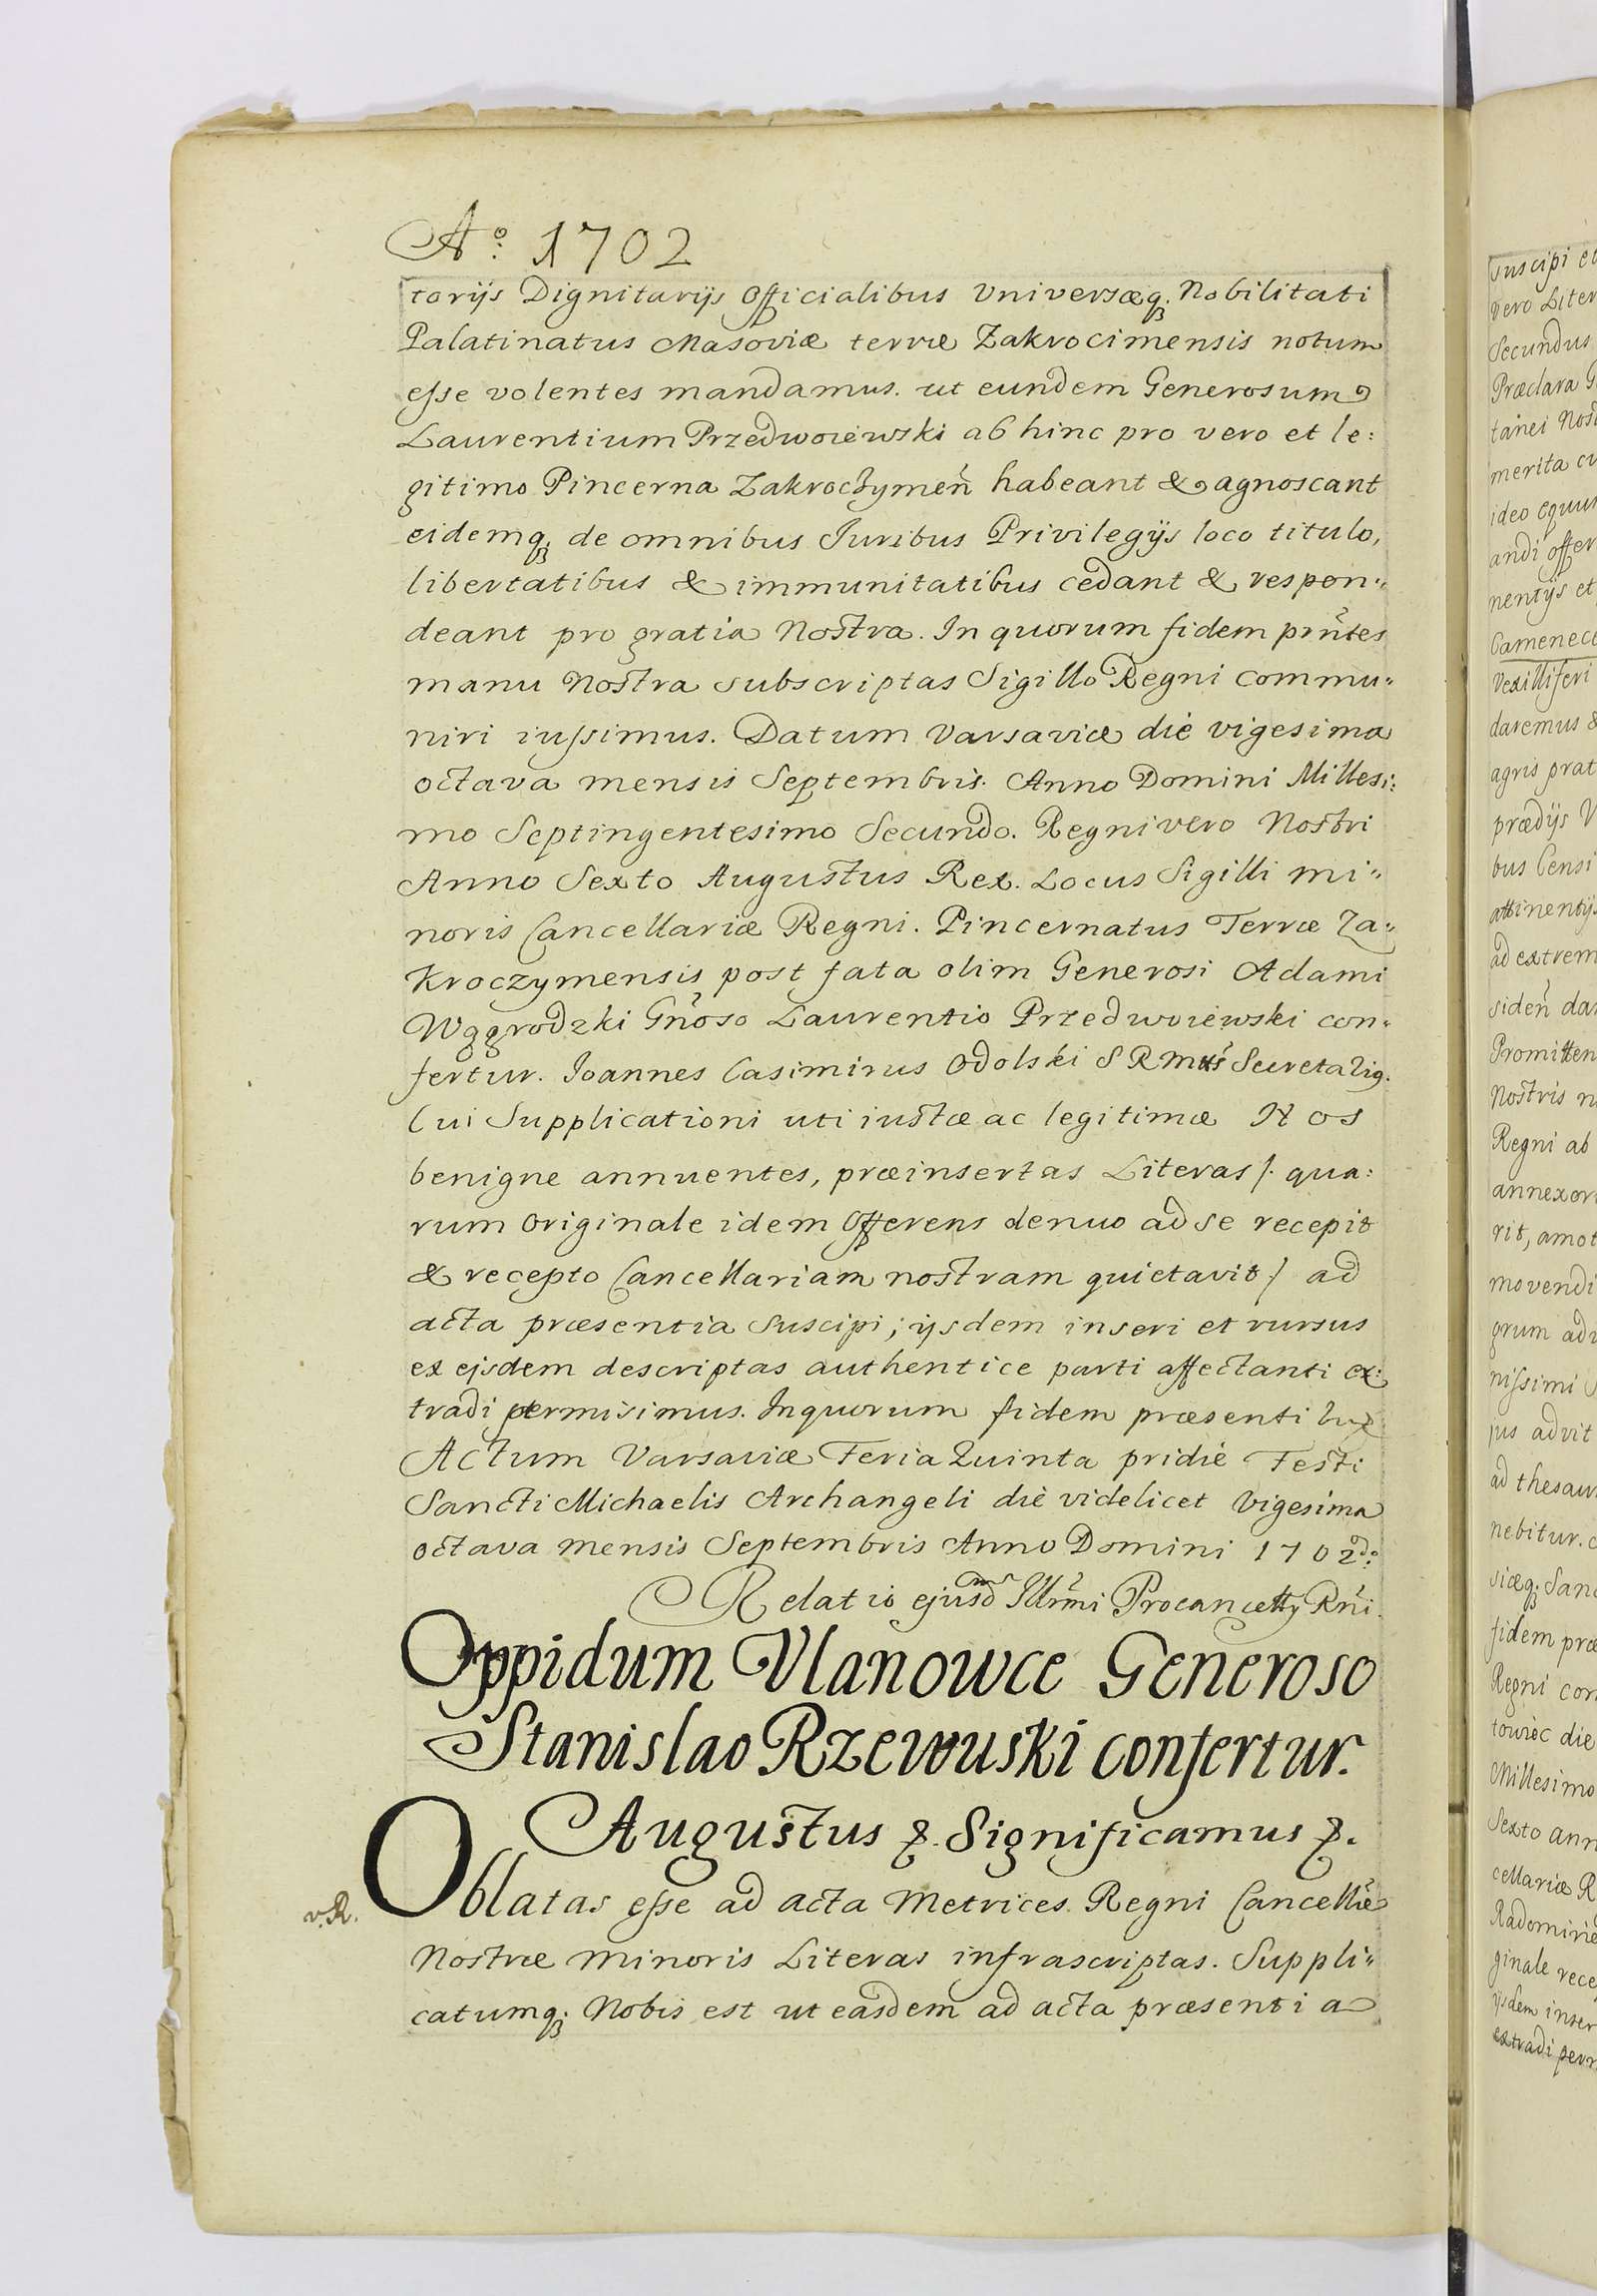 Aº. 1702
torijs Dignitarijs Officialibus Universæq; Nobilitati
Palatinatus Masoviæ terræ Zakrocimensis notum
esse volentes mandamus. ut eundem Generosum
Laurentium Przedwoiewski ab hinc pro vero et le:
gitimo Pincerna Zakroczymeñ habeant & agnoscant
eidemq; de omnibus Iuribus Privilegijs loco titulo,
libertatibus & immunitatibus cedant & respon„
deant pro gratia Nostra. In quorum fidem prñtes
manu Nostra subscriptas Sigillo Regni commu„
niri iussimus. Datum Varsaviæ die vigesima
octava mensis Septembris. Anno Domini Millesi:
mo Septingentesimo Secundo. Regni vero Nostri
Anno Sexto Augustus Rex. Locus Sigilli mi„
noris Cancellariæ Regni. Pincernatus Terræ Za„
Kroczymensis post fata olim Generosi Adami
Wggrodzki Gñoso Laurentio Przedwoiewski con„
fertur. Ioannes Casimirus Odolski S R
Cui Supplicationi uti iustæ ac legitimæ Nos
benigne annuentes, præinsertas Literas /. qua:
rum Originale idem Offerens denuo ad se recepit
& recepto Cancellariam nostram quietavit / ad
acta præsentia suscipi; ijsdem inseri et rursus
ex ejsdem descriptas authentice parti affectanti ex:
tradi permisimus. In quorum fidem præsenti
Actum Varsaviæ Feria Quinta pridie Festi
Sancti Michaelis Archangeli die videlicet Vigesima
octava mensis Septembris Anno Domini 1702do.
Relatio ejusdm Illrmi Procancellÿ Rñi.
Oppidum Vlanowce Generoso
Stanislao Rzewuski confertur.
Augustus &. Significamus &.
v.R.
Oblatas esse ad acta Metrices Regni Cancellïæ
Nostræ Minoris Literas infrascriptas. Suppli„
catumq; Nobis est ut easdem ad acta præsentia
suscipi et
vero Liter
Secundus
Præclara G
tanei Nost
merita cu
ideo equum
andi offer
nentijs et
Camenece
Vexilliferi
daremus &
agris prat
prædijs V
bus Censi
attinentijs
ad extrem
sideñ dar
Promitten
Nostris n
Regni ab
annexor
rit, amot
movendi
grum ad
nissimi S
jus ad vit
ad thesaur
nebitur. c
siæq; Sanc
fidem præ
Regni com
towiec die
Millesimo
Sexto ann
cellariæ R
Radomirie
ginale rece
ijsdem inser
extradi perm